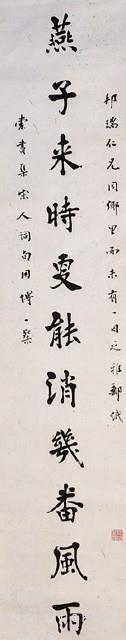 邦瑞仁兄同鄉里而未有一日之雅郵緘
燕子来時更能消幾番風雨
索書集宋人詞句用博一粲